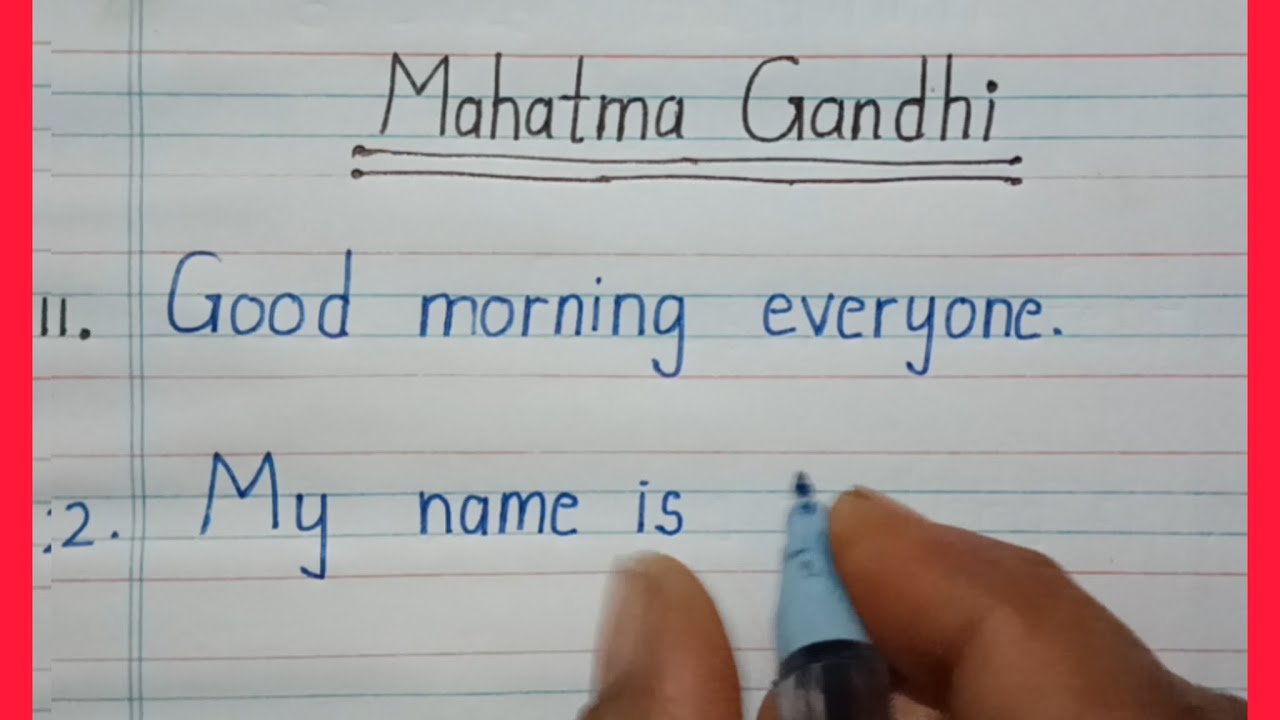 Mahatma Gandhi
11. Good morning everyone.
:2. My name is